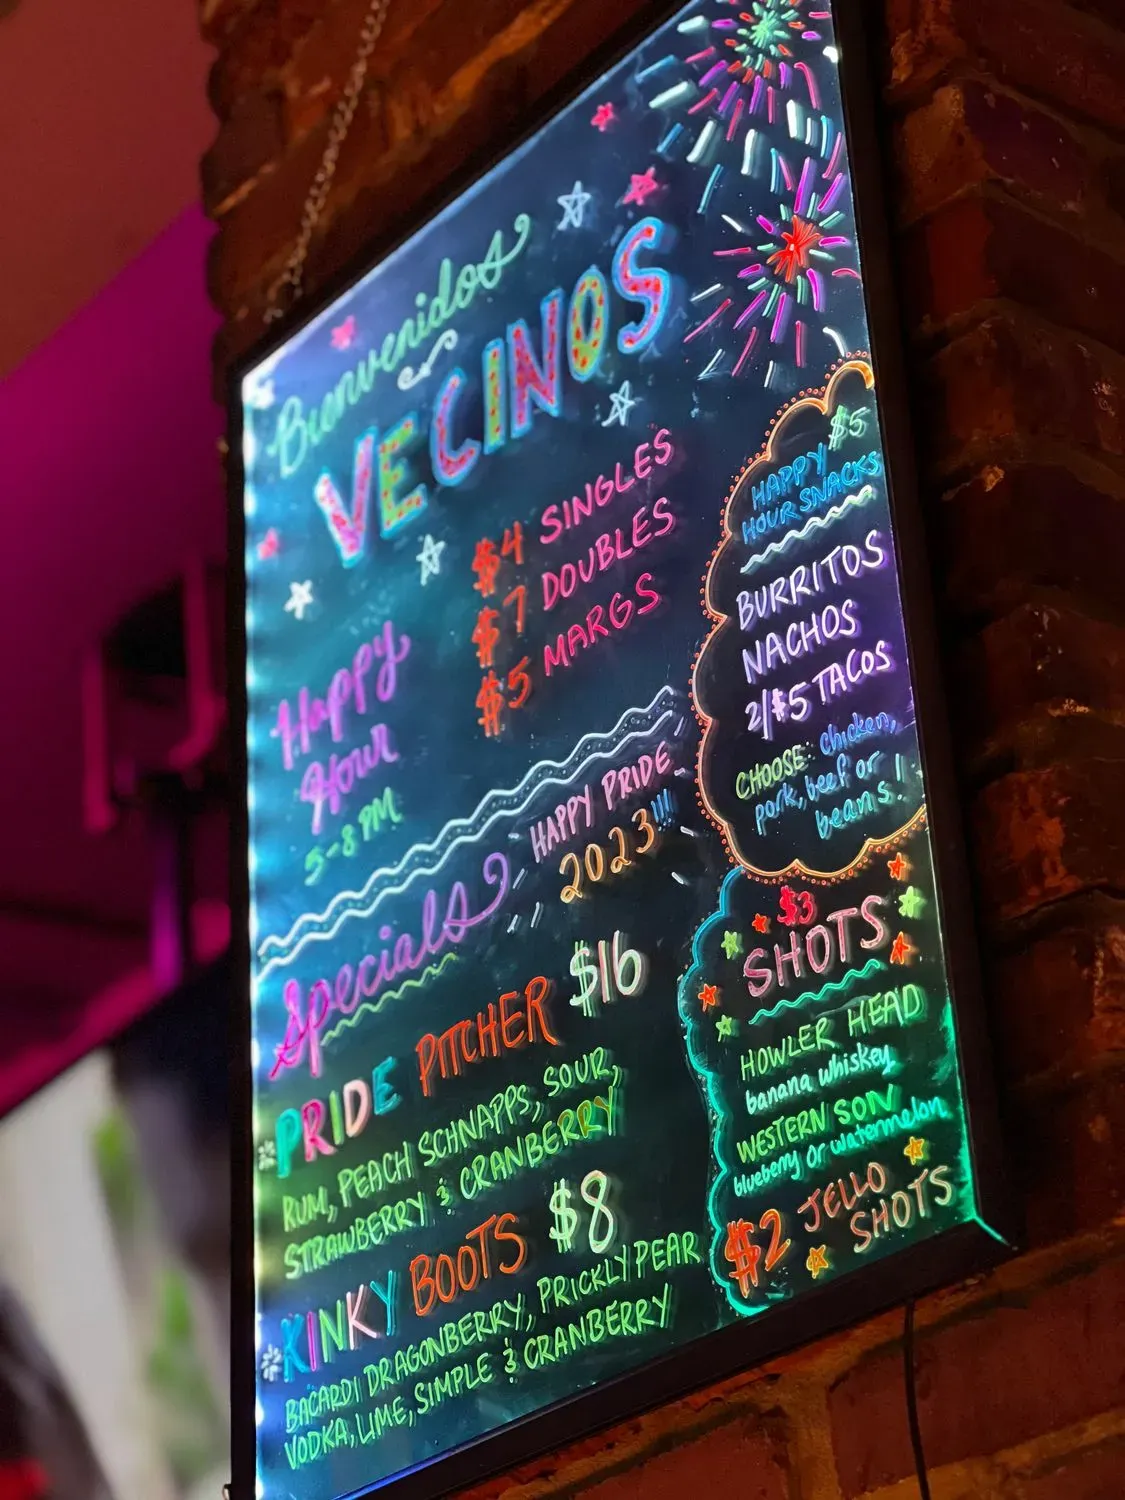 Bienvenidos
VECINOS
Happy
Hour
5-8 PM
$4 SINGLES
$7 DOUBLES
$5 MARGS
$5
HAPPY
HOUR SNACKS
BURRITOS
NACHOS
2/$5 TACOS
CHOOSE: chicken,
pork, beef or
beans!
HAPPY PRIDE
2023!!!!
Specials
PRIDE PITCHER $16
RUM, PEACH SCHNAPPS, SOUR,
STRAWBERRY & CRANBERRY
KINKY BOOTS $8
BACARDI DRAGONBERRY, PRICKLY PEAR
VODKA, LIME, SIMPLE & CRANBERRY
$3
SHOTS
HOWLER HEAD
banana whiskey
WESTERN SON
blueberry or watermelon
$2 JELLO
SHOTS